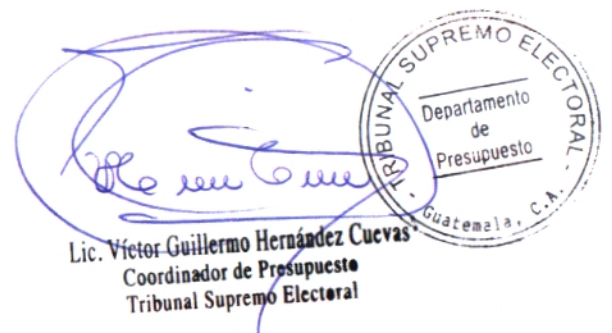 TRIBUNAL SUPREMO ELECTORAL
Departamento
de
Presupuesto
Guatemala, C.A.
Lic. Víctor Guillermo Hernández Cuevas
Coordinador de Presupuesto
Tribunal Supremo Electoral